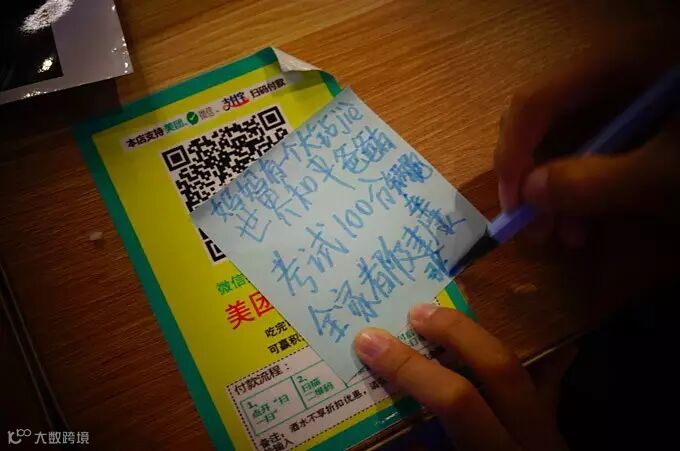 本店支持 美团、微信、支付宝 扫码付款
妈妈有个大钻戒
世界和平 爸爸
考试100分
全家都健康
微信
美团
吃完
可赢积
付款流程:
1、
点开“扫
一扫”
2、
扫描
二维码
酒水不享折扣优惠,
备注:
大数跨境